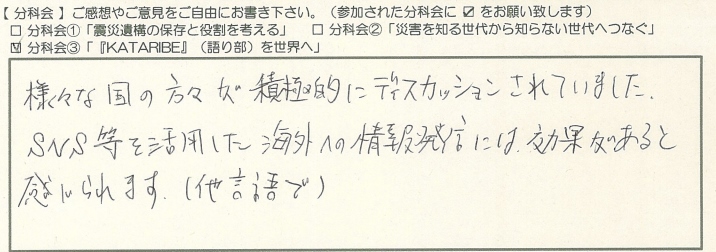 【 分科会 】ご感想やご意見をご自由にお書き下さい。（参加された分科会に ☑ をお願い致します）
□ 分科会①「震災遺構の保存と役割を考える」 □ 分科会②「災害を知る世代から知らない世代へつなぐ」
☑ 分科会③「『KATARIBE』（語り部）を世界へ」
様々な国の方々が積極的にディスカッションされていました.
SNS等を活用した海外への情報発信には、効果があると
感じられます.（他言語で）